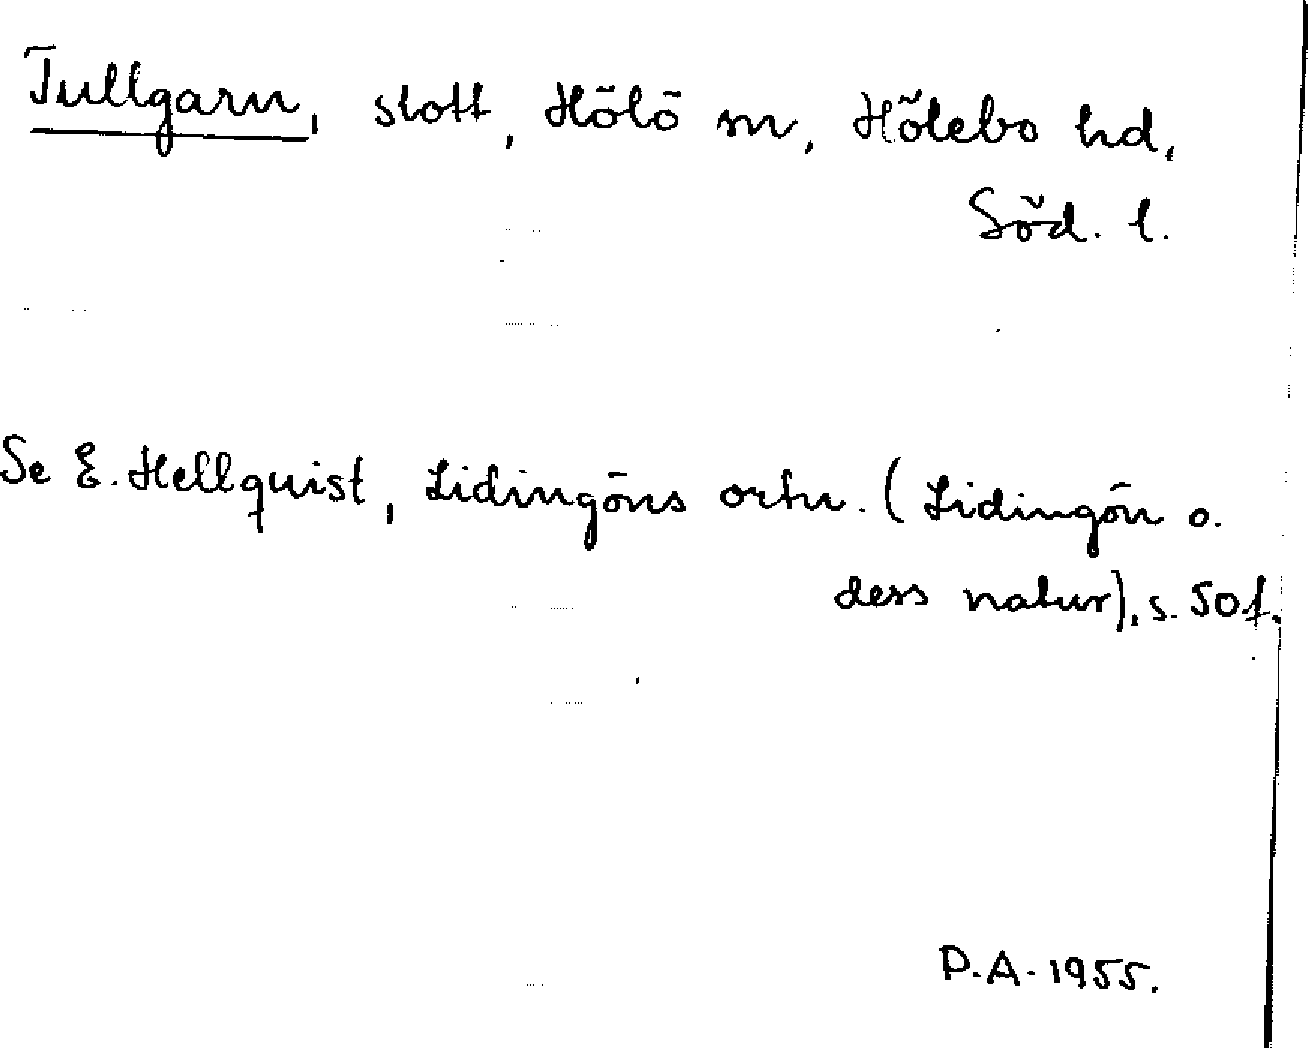 Tullgarn, slott, Hölö sn, Hölebo hd,
Söd. l.
Se E. Hellquist, Lidingöns ortn. (Lidingön o.
dess natur), s. 50 f.
D.A. 1955.